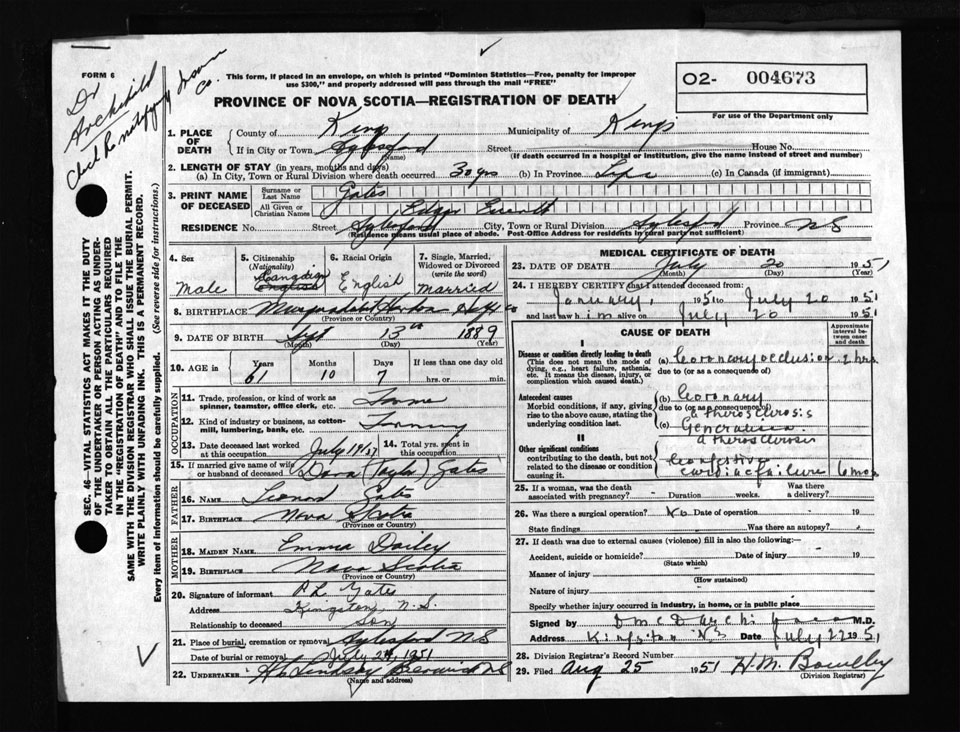 FORM 6
Dr
Archibald
Co.
This form, if placed in an envelope, on which is printed "Dominion Statistics—Free, penalty for improper
use $300," and properly addressed will pass through the mail "FREE"
O2- 004673
For use of the Department only
PROVINCE OF NOVA SCOTIA—REGISTRATION OF DEATH
SEC. 46—VITAL STATISTICS ACT MAKES IT THE DUTY
OF THE UNDERTAKER OR PERSON ACTING AS UNDER-
TAKER TO OBTAIN ALL THE PARTICULARS REQUIRED
IN THE "REGISTRATION OF DEATH" AND TO FILE THE
SAME WITH THE DIVISION REGISTRAR WHO SHALL ISSUE THE BURIAL PERMIT.
WRITE PLAINLY WITH UNFADING INK. THIS IS A PERMANENT RECORD.
Every item of information should be carefully supplied. (See reverse side for instructions.)
1. PLACE OF DEATH
County of Kings Municipality of Kings
If in City or Town Aylesford Street House No.
(Name) (If death occurred in a hospital or institution, give the name instead of street and number)
2. LENGTH OF STAY (in years, months and days)
(a) In City, Town or Rural Division where death occurred 30 yrs (b) In Province Life (c) In Canada (if immigrant)
3. PRINT NAME OF DECEASED
Surname or Last Name Gates
All Given or Christian Names Edgar Everett
RESIDENCE No. Street Aylesford City, Town or Rural Division Aylesford Province N S
(Residence means usual place of abode. Post-Office Address for residents in rural parts not sufficient)
4. Sex 5. Citizenship (Nationality) 6. Racial Origin 7. Single, Married, Widowed or Divorced (write the word)
Male Canadian English English married
8. BIRTHPLACE Harbor
(Province or Country)
9. DATE OF BIRTH Sept 13th 1889
(Month) (Day) (Year)
10. AGE in Years Months Days If less than one day old
61 10 7 hrs. or min.
OCCUPATION
11. Trade, profession, or kind of work as
spinner, teamster, office clerk, etc.
12. Kind of industry or business, as cotton-
mill, lumbering, bank, etc. Farming
13. Date deceased last worked
at this occupation July 19/51
14. Total yrs. spent in
this occupation
15. If married give name of wife
or husband of deceased Dora (Taylor) Gates
FATHER
16. NAME Gates
17. BIRTHPLACE Nova Scotia
(Province or Country)
MOTHER
18. MAIDEN NAME Emma Dailey
19. BIRTHPLACE Nova Scotia
(Province or Country)
20. Signature of informant Gates
Address Kingston, N.S.
Relationship to deceased Son
21. Place of burial, cremation or removal Aylesford N S
Date of burial or removal July 24, 1951
22. UNDERTAKER Lindsay Berwick N S
(Name and address)
MEDICAL CERTIFICATE OF DEATH
23. DATE OF DEATH July 20 1951
(Month) (Day) (Year)
24. I HEREBY CERTIFY that I attended deceased from:
January, 1951 to July 20 1951
and last saw him alive on July 20 1951
CAUSE OF DEATH
Approximate interval between onset and death
I
Disease or condition directly leading to death
(This does not mean the mode of
dying, e.g., heart failure, asthenia,
etc. It means the disease, injury, or
complication which caused death.)
(a) Coronary occlusion 2 hrs.
due to (or as a consequence of)
Antecedent causes
Morbid conditions, if any, giving
rise to the above cause, stating the
underlying condition last.
(b) Coronary
due to (or as a consequence of)
atherosclerosis
(c) Generalised
atherosclerosis
II
Other significant conditions
contributing to the death, but not
related to the disease or condition
causing it.
Congestive
cardiac failure 6 mos
25. If a woman, was the death
associated with pregnancy? Duration weeks. Was there
a delivery?
26. Was there a surgical operation? No Date of operation 19
State findings Was there an autopsy?
27. If death was due to external causes (violence) fill in also the following:—
Accident, suicide or homicide? Date of injury 19
(State which)
Manner of injury
(How sustained)
Nature of injury
Specify whether injury occurred in industry, in home, or in public place
Signed by M.D.
Address Kingston NS Date July 22 1951
28. Division Registrar's Record Number
29. Filed Aug 25 1951 H. M.
(Division Registrar)